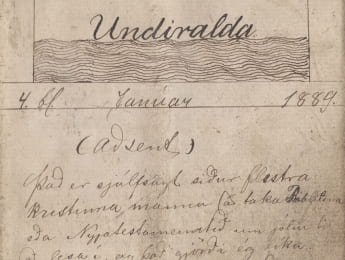 Undiralda
4. bl. Janúar 1889.
(Aðsent)
Það er sjálfsagt siður flestra
kristinna manna að taka Biblíuna
eða Nýjatestamentið um jólin til
að lesa í, og það gjörða ég líka.